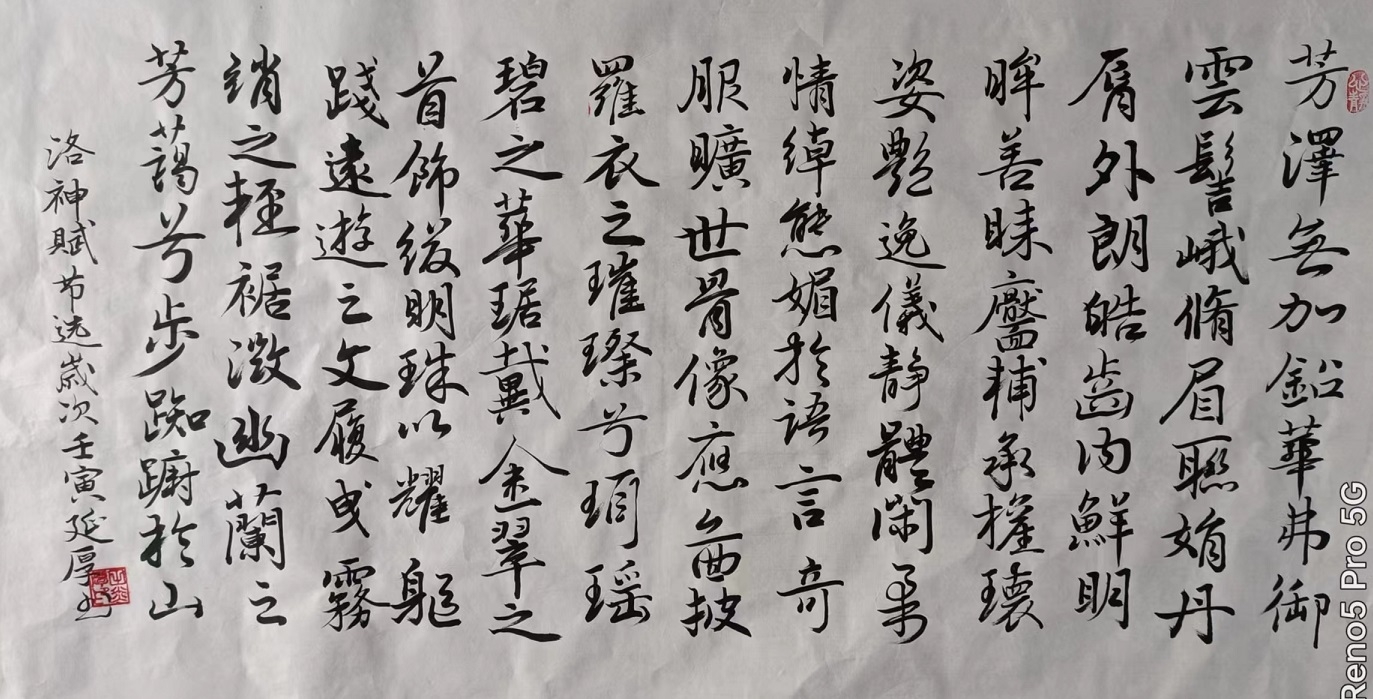 芳澤無加鉛華弗御
雲髻峨脩眉聯娟丹
脣外朗皓齒内鮮明
眸善睞靨輔承權瓌
姿艷逸儀静體閑柔
情綽態媚於語言奇
服曠世骨像應啚披
羅衣之璀璨兮珥瑶
碧之華琚戴金翠之
首飾綴明珠以耀軀
踐遠遊之文履曳霧
綃之輕裾微幽蘭之
芳藹兮步踟躕於山
洛神賦节选歲次壬寅延厚书
Reno5 Pro 5G